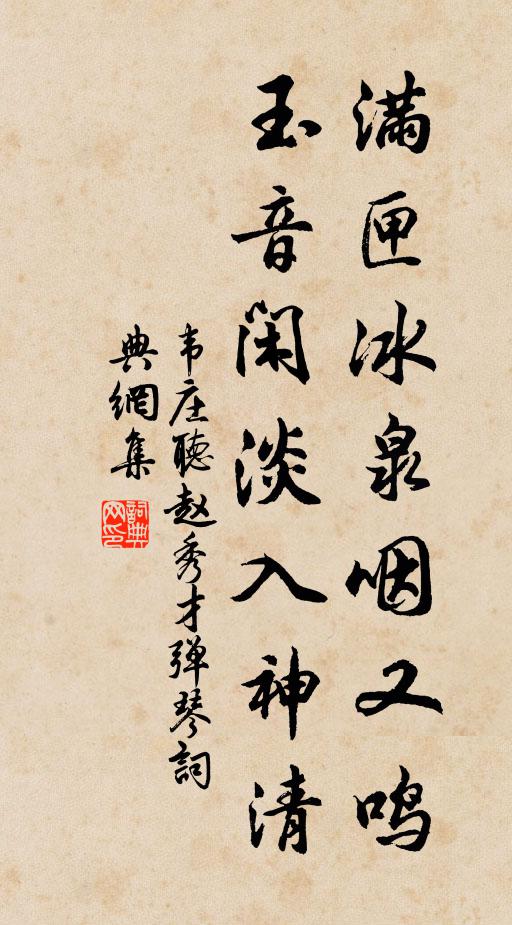 满匣冰泉咽又鸣
玉音闲淡入神清
韦庄聴赵秀才弹琴詞
典網集
詞典网印